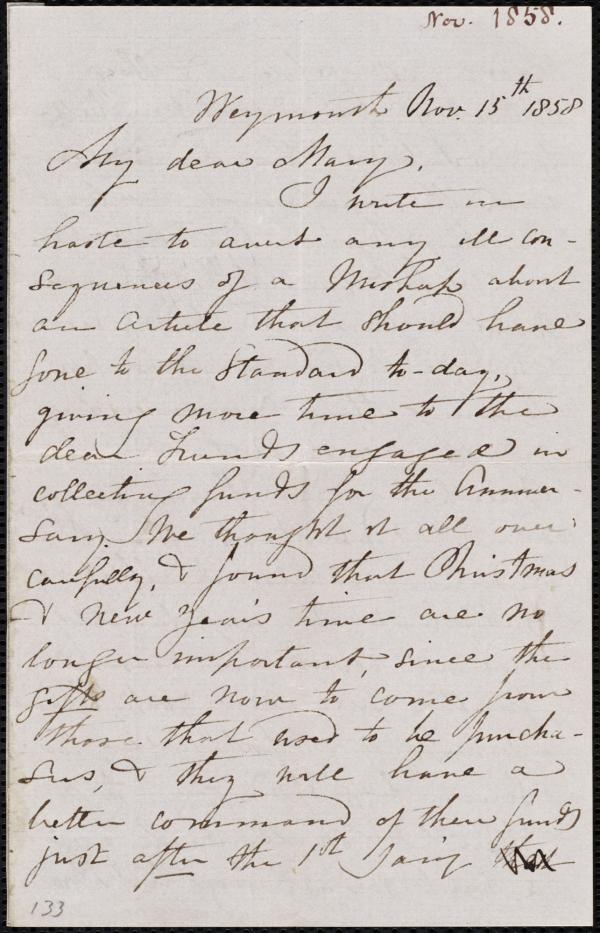 Nov. 1858.
Weymouth Nov. 15th 1858
My dear Mary,
I write in
haste to avert any ill con-
sequences of a Mishap about
an Article that should have
gone to the Standard to-day,
giving more time to the
dear Friends engaged in
collecting funds for the Anniver-
sary. We thought it all over
carefully, & found that Christmas
& New Year's time are no
longer important, since the
gifts are now to come from
those that used to be purcha-
sers, & they will have a
better command of their funds
just after the 1st Jan'y
133